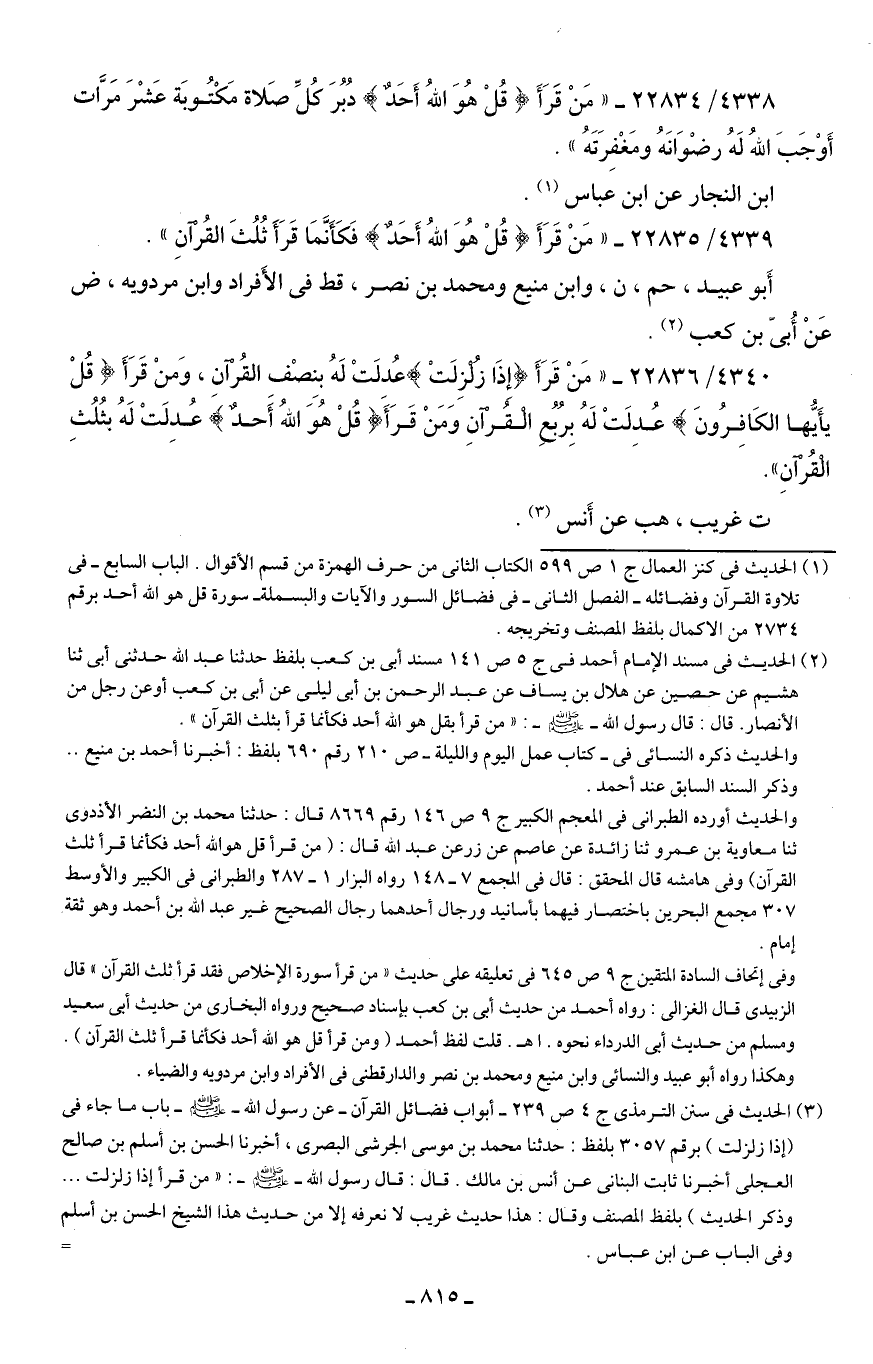 ٤٣٣٨/ ٢٢٨٣٤ ـ « مَنْ قَرَأَ ﴿ قُلْ هُوَ اللهُ أَحَدٌ ﴾ دُبُرَ كُلِّ صَلاة مَكْتُوبَة عَشْرَ مَرَّات
أَوْجَبَ اللهُ لَهُ رضْوَانَهُ ومَغْفِرَتَهُ » .
ابن النجار عن ابن عباس (١) .
٤٣٣٩/ ٢٢٨٣٥ ـ « مَنْ قَرَأَ ﴿ قُلْ هُوَ اللهُ أَحَدٌ ﴾ فَكَأَنَّمَا قَرَأَ ثُلُثَ القُرْآنِ » .
أبو عبيد ، حم ، ن ، وابن منيع ومحمد بن نصر ، قط فى الأفراد وابن مردويه ، ض
عَنْ أُبىّ بن كعب (٢) .
٤٣٤٠/ ٢٢٨٣٦ ـ « مَنْ قَرَأَ ﴿إذَا زُلْزِلَتْ ﴾عُدلَتْ لَهُ بنصْف القُرْآنِ ، ومَنْ قَرَأَ ﴿ قُلْ
يأَيُّها الكَافِرُونَ ﴾ عُدِلَتْ لَهُ بِرُبُعِ الْقُرآنِ وَمَنْ قَرَأَ﴿ قُلْ هُوَ اللهُ أَحدٌ ﴾ عُدلَتْ لَهُ بثُلُثِ
الْقُرآنِ».
ت غريب ، هب عن أَنس (٣) .
(١) الحديث فى كنز العمال ج ١ ص ٥٩٩ الكتاب الثانى من حرف الهمزة من قسم الأقوال . الباب السابع ـ فى
تلاوة القرآن وفضائله ـ الفصل الثانى ـ فى فضائل السور والآيات والبسملة ـ سورة قل هو الله أحد برقم
٢٧٣٤ من الاكمال بلفظ المصنف وتخريجه .
(٢) الحديث فى مسند الإمام أحمد فى ج ٥ ص ١٤١ مسند أبى بن كعب بلفظ حدثنا عبد الله حدثنى أبى ثنا
هشيم عن حصين عن هلال بن يساف عن عبد الرحمن بن أبى ليلى عن أبى بن كعب أوعن رجل من
الأنصار. قال : قال رسول الله ـ ﷺ ـ : « من قرأ بقل هو الله أحد فكأنما قرأ بثلث القرآن » .
والحديث ذكره النسائى فى ـ كتاب عمل اليوم والليلة ـ ص ٢١٠ رقم ٦٩٠ بلفظ : أخبرنا أحمد بن منيع ..
وذكر السند السابق عند أحمد .
والحديث أورده الطبرانى فى المعجم الكبير ج ٩ ص ١٤٦ رقم ٨٦٦٩ قال : حدثنا محمد بن النضر الأذدوى
ثنا معاوية بن عمرو ثنا زائدة عن عاصم عن زرعن عبد الله قال : ( من قرأ قل هوالله أحد فكأنما قرأ ثلث
القرآن) وفى هامشه قال المحقق : قال فى المجمع ٧ ـ ١٤٨ رواه البزار ١ ـ ٢٨٧ والطبرانى فى الكبير والأوسط
٣٠٧ مجمع البحرين باختصار فيهما بأسانيد ورجال أحدهما رجال الصحيح غير عبد الله بن أحمد وهو ثقة
إمام .
وفى إتحاف السادة المتقين ج ٩ ص ٦٤٥ فى تعليقه على حديث « من قرأ سورة الإخلاص فقد قرأ ثلث القرآن » قال
الزبيدى قال الغزالى : رواه أحمد من حديث أبى بن كعب بإسناد صحيح ورواه البخارى من حديث أبى سعيد
ومسلم من حديث أبى الدرداء نحوه . اهـ . قلت لفظ أحمد ( ومن قرأ قل هو الله أحد فكأنما قرأ ثلث القرآن ) .
وهكذا رواه أبو عبيد والنسائى وابن منيع ومحمد بن نصر والدارقطنى فى الأفراد وابن مردويه والضياء .
(٣) الحديث فى سنن الترمذى ج ٤ ص ٢٣٩ ـ أبواب فضائل القرآن ـ عن رسول الله ـ ﷺ ـ باب ما جاء فى
(إذا زلزلت ) برقم ٣٠٥٧ بلفظ : حدثنا محمد بن موسى الجرشى البصرى ، أخبرنا الحسن بن أسلم بن صالح
العجلى أخبرنا ثابت البنانى عن أنس بن مالك . قال : قال رسول الله ـ ﷺ ـ : « من قرأ إذا زلزلت ...
وذكر الحديث ) بلفظ المصنف وقال : هذا حديث غريب لا نعرفه إلا من حديث هذا الشيخ الحسن بن أسلم
وفى الباب عن ابن عباس .
=
ـ ٨١٥ ـ